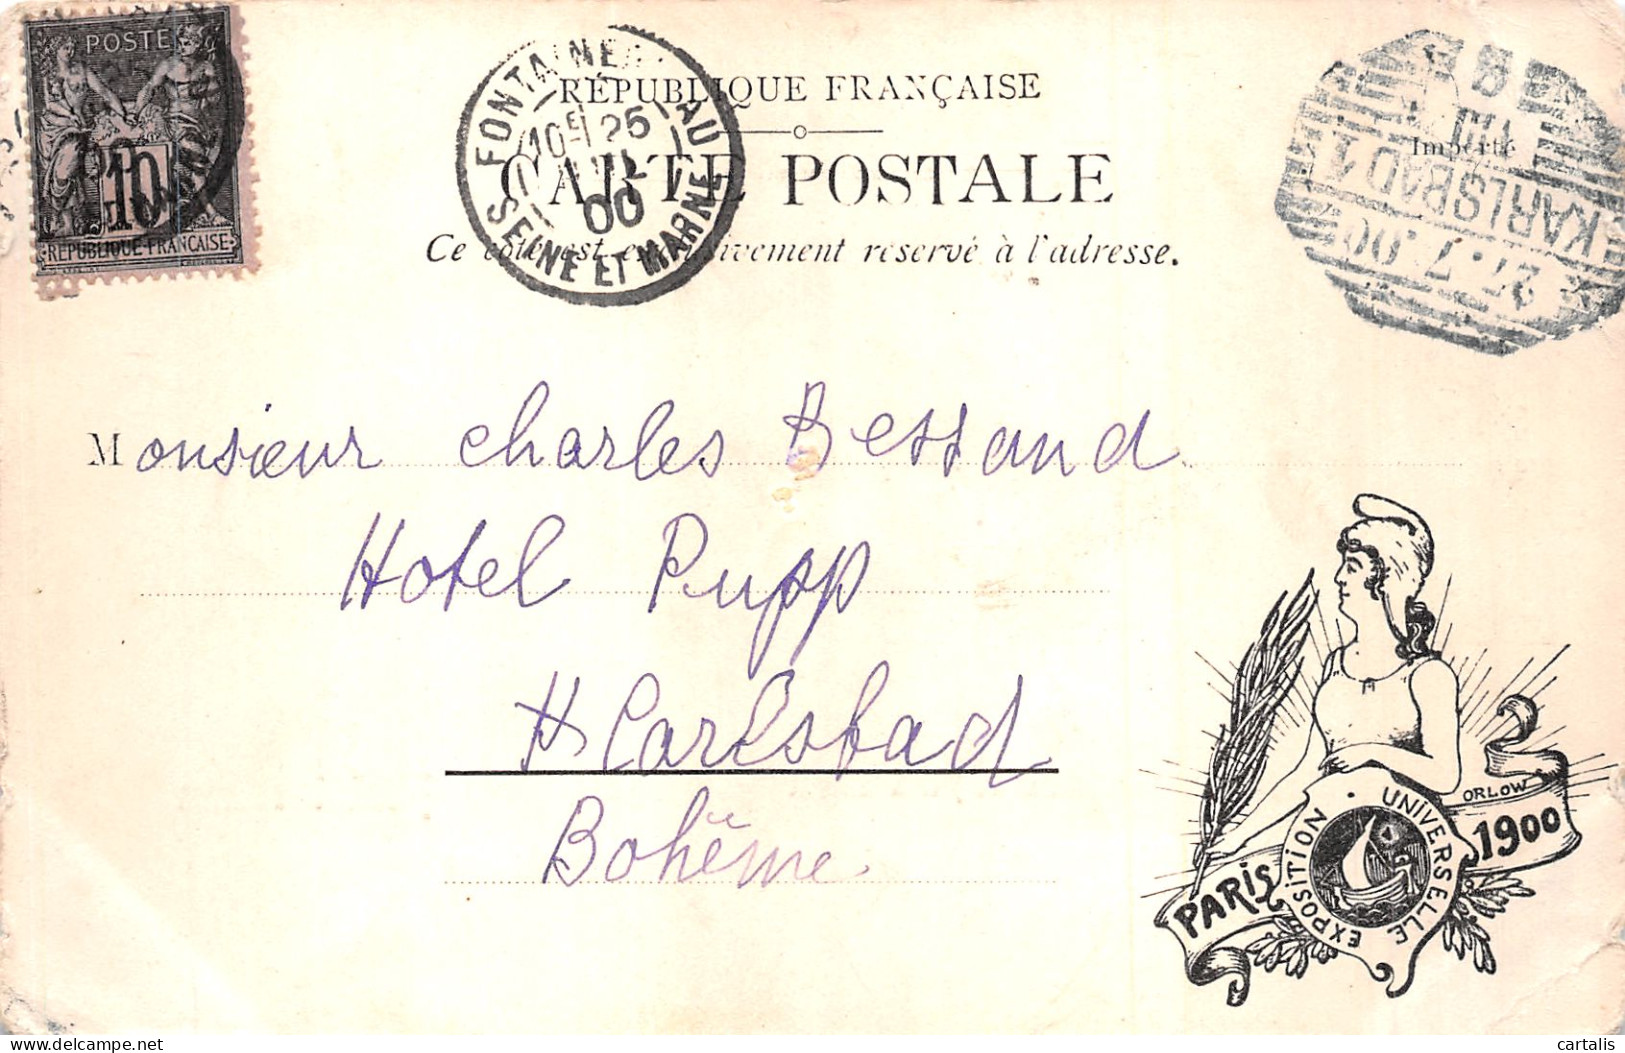 POSTE
10
RÉPUBLIQUE FRANÇAISE
FONTAINEBLEAU
10E 25
JUIL
00
SEINE ET MARNE
RÉPUBLIQUE FRANÇAISE
CARTE POSTALE
Ce côté est exclusivement reservé à l'adresse.
Imperté
KARLSBAD 1
27.7.00
Monsieur Charles Bessand
Hotel Pupp
Carlsbad
Bohême
ORLOW
PARIS 1900
EXPOSITION · UNIVERSELLE
cartalis